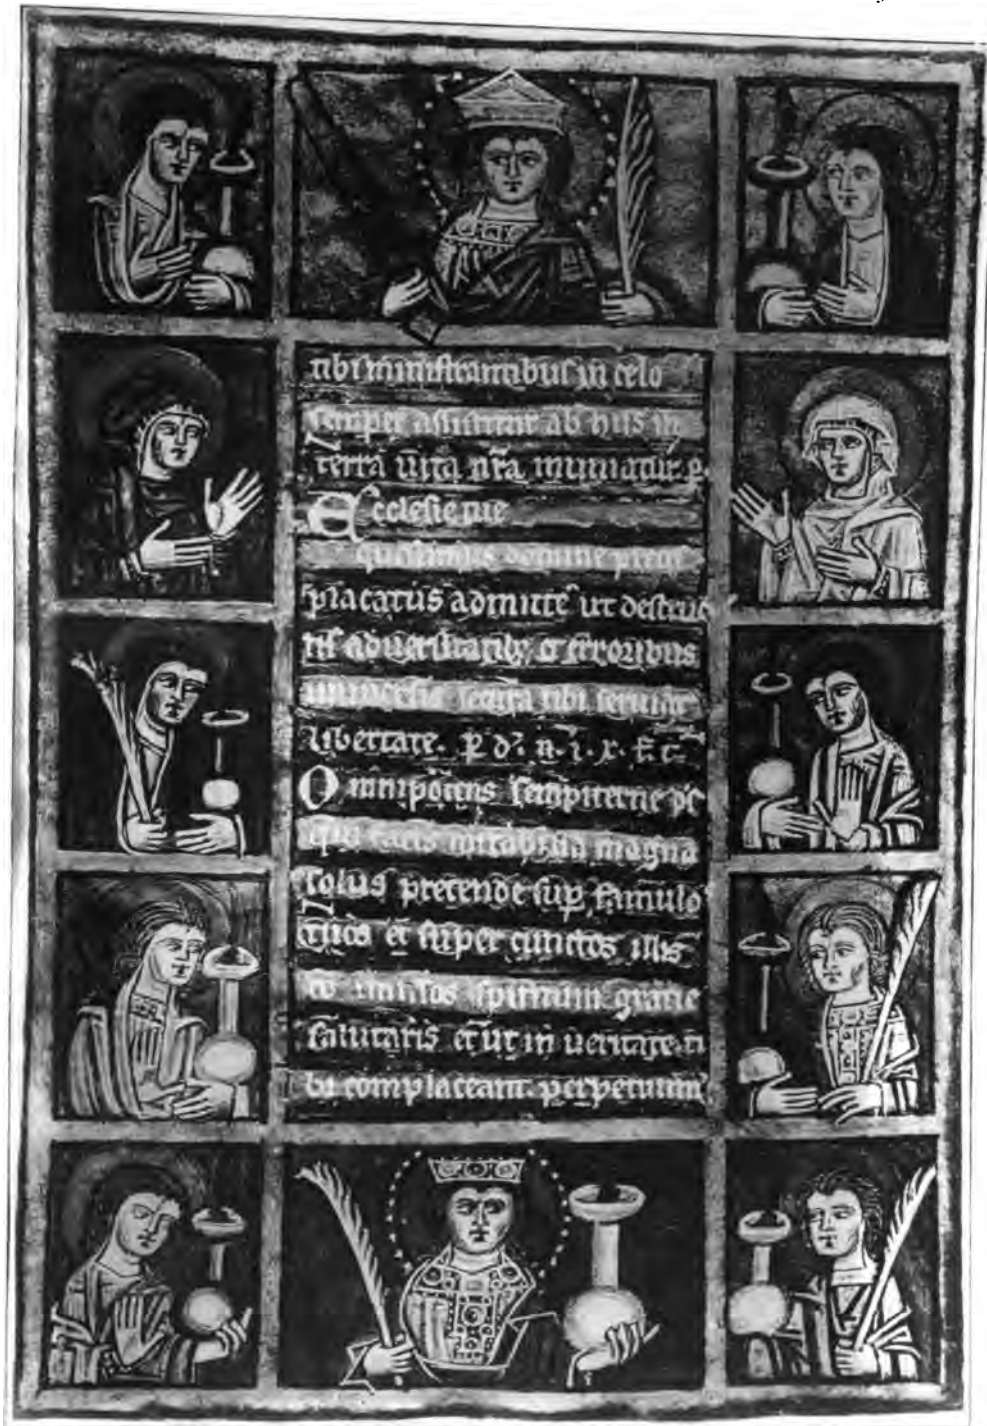 tibi ministrantibus in celo
semper assistitur ab hiis in
terra uita nr̄a muniatur. p.
Ecclesie tue
quesumus domine preces
placatus admitte ut destruc
tis aduersitatib; et erroribus
uniuersis secura tibi seruiat
libertate. P d. n. i. x. f. t.
Omnipotens sempiterne ds
qui facis mirabilia magna
solus pretende sup famulos
tuos et super cunctos illis
co missos spiritum gratie
salutaris et ut in ueritate ti
bi complaceant. perpetuum